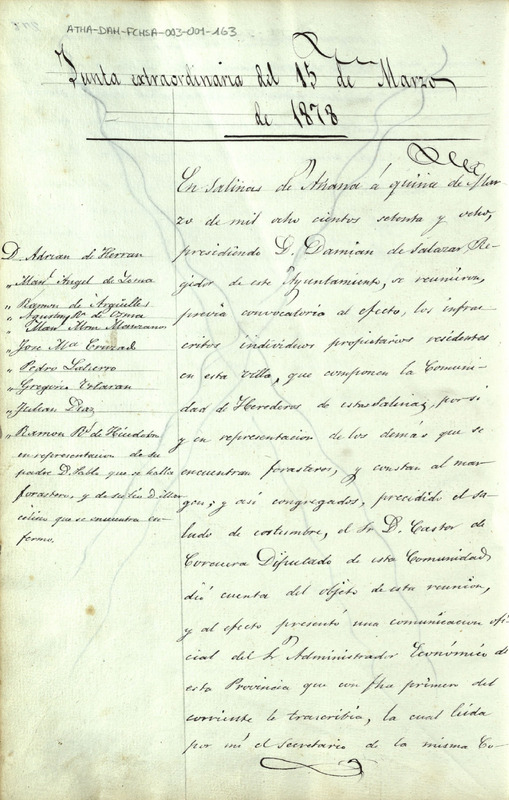 ATHA-DAH-FCHSA-003-001-163
Junta extraordinaria del 15 de Marzo
de 1878
D. Adrian de Herran
" Man.l Angel de Lema
" Ramon de Argüelles
" Agustin R. de Ozma
" Man.l Mom. Manzanos
" Jose M.a
" Pedro
" Gregorio
" Julian Diaz
" Ramon R.z de
en representacion de su
padre D. Pablo que se halla
forastero, y de su tio D.
que se encuentra en-
fermo.
En Salinas de Añana á quince de Mar-
zo de mil ocho cientos setenta y ocho,
presidiendo D. Damian de Salazar Re-
gidor de este Ayuntamiento, se reunieron,
previa convocatoria al efecto, los infras-
critos individuos propietarios residentes
en esta Villa, que componen la Comuni-
dad de Herederos de estas Salinas, por si
y en representacion de los demás que se
encuentran forasteros, y constan al mar-
gen; y así congregados, precedido el sa-
ludo de costumbre, el Sr. D. Castor de
Corcuera Diputado de esta Comunidad,
dió cuenta del objeto de esta reunion,
y al efecto presentó una comunicacion ofi-
cial del Sr. Administrador Económico de
esta Provincia que con fha primero del
corriente le trascribia, la cual leida
por mi el Secretario de la misma Co-